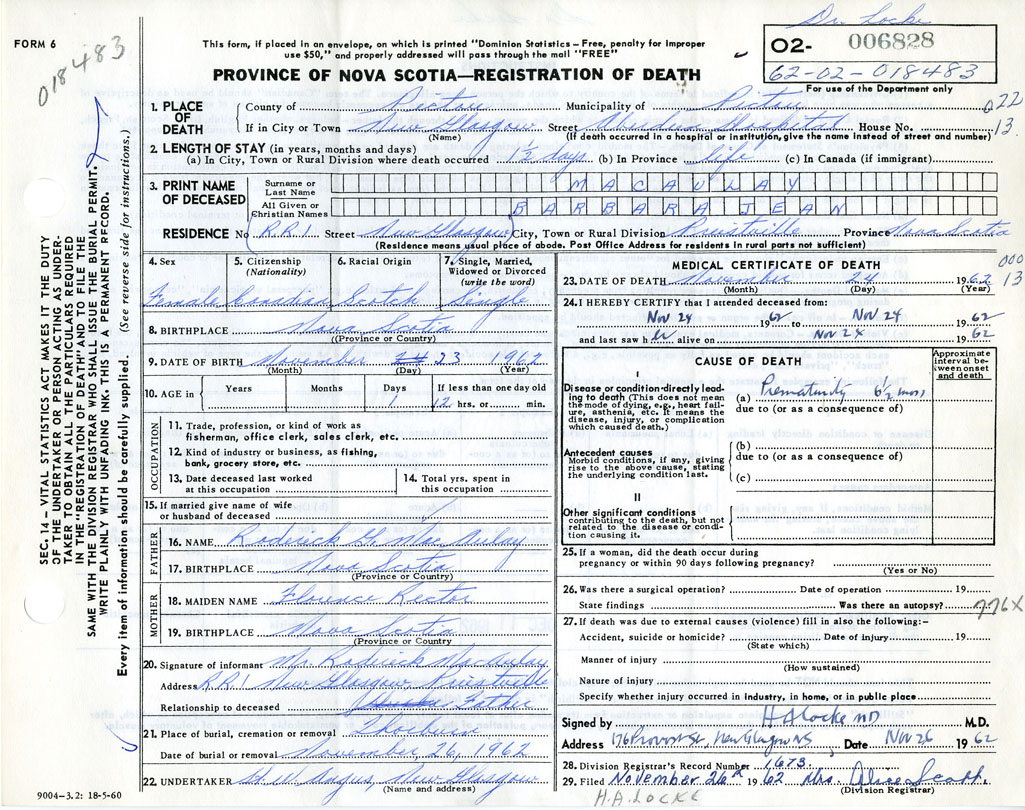 Dr. Locke
FORM 6
018483
This form, if placed in an envelope, on which is printed "Dominion Statistics – Free, penalty for improper
use $50," and properly addressed will pass through the mail "FREE"
O2- 006828
62-02-018483
For use of the Department only
PROVINCE OF NOVA SCOTIA—REGISTRATION OF DEATH
SEC. 14 – VITAL STATISTICS ACT MAKES IT THE DUTY
OF THE UNDERTAKER OR PERSON ACTING AS UNDER-
TAKER TO OBTAIN ALL THE PARTICULARS REQUIRED
IN THE "REGISTRATION OF DEATH" AND TO FILE THE
SAME WITH THE DIVISION REGISTRAR WHO SHALL ISSUE THE BURIAL PERMIT.
WRITE PLAINLY WITH UNFADING INK. THIS IS A PERMANENT RECORD.
Every item of information should be carefully supplied. (See reverse side for instructions.)
1. PLACE OF DEATH
County of Pictou Municipality of Pictou 022
If in City or Town New Glasgow Street Aberdeen Hospital House No. 13.
(Name) (If death occurred in a hospital or institution, give the name instead of street and number)
2. LENGTH OF STAY (in years, months and days)
(a) In City, Town or Rural Division where death occurred 1½ days (b) In Province life (c) In Canada (if immigrant)
3. PRINT NAME OF DECEASED
Surname or Last Name MACAULAY
All Given or Christian Names BARBARA JEAN
RESIDENCE No RR1 Street New Glasgow City, Town or Rural Division Priestville Province Nova Scotia
(Residence means usual place of abode. Post Office Address for residents in rural parts not sufficient)
4. Sex
Female
5. Citizenship
(Nationality)
Canadian
6. Racial Origin
Scotch
7. Single, Married,
Widowed or Divorced
(write the word)
Single
8. BIRTHPLACE Nova Scotia
(Province or Country)
9. DATE OF BIRTH November 24 23 1962
(Month) (Day) (Year)
10. AGE in
Years Months Days If less than one day old
1 12 hrs. or min.
OCCUPATION
11. Trade, profession, or kind of work as
fisherman, office clerk, sales clerk, etc.
12. Kind of industry or business, as fishing,
bank, grocery store, etc.
13. Date deceased last worked
at this occupation
14. Total yrs. spent in
this occupation
15. If married give name of wife
or husband of deceased
FATHER
16. NAME Roderick G. MacAulay
17. BIRTHPLACE Nova Scotia
(Province or Country)
MOTHER
18. MAIDEN NAME Florence Rector
19. BIRTHPLACE Nova Scotia
(Province or Country)
20. Signature of informant Mr. Roderick MacAulay
Address RR1 New Glasgow, Priestville
Relationship to deceased Father
21. Place of burial, cremation or removal Thorburn
Date of burial or removal November 26, 1962
22. UNDERTAKER Angus, New Glasgow
(Name and address)
9004-3.2: 18-5-60
MEDICAL CERTIFICATE OF DEATH
000
13
23. DATE OF DEATH November 24 1962
(Month) (Day) (Year)
24. I HEREBY CERTIFY that I attended deceased from:
Nov 24 1962 to Nov 24 1962
and last saw her alive on Nov 24 1962
CAUSE OF DEATH
Approximate
interval between
onset
and death
I
Disease or condition directly lead-
ing to death (This does not mean
the mode of dying, e.g., heart fail-
ure, asthenia, etc. It means the
disease, injury, or complication
which caused death.)
(a) Prematurity 6½ mos
due to (or as a consequence of)
Antecedent causes
Morbid conditions, if any, giving
rise to the above cause, stating
the underlying condition last.
(b)
due to (or as a consequence of)
(c)
II
Other significant conditions
contributing to the death, but not
related to the disease or condi-
tion causing it.
25. If a woman, did the death occur during
pregnancy or within 90 days following pregnancy?
(Yes or No)
26. Was there a surgical operation? Date of operation 19
State findings Was there an autopsy? 776X
27. If death was due to external causes (violence) fill in also the following:-
Accident, suicide or homicide? Date of injury 19
(State which)
Manner of injury
(How sustained)
Nature of injury
Specify whether injury occurred in industry, in home, or in public place
Signed by H A Locke MD M.D.
Address 176 Provost St, New Glasgow NS Date Nov 26 1962
28. Division Registrar's Record Number 1673
29. Filed November 26th 1962 Mrs. Alice Scott
(Division Registrar)
H.A. LOCKE